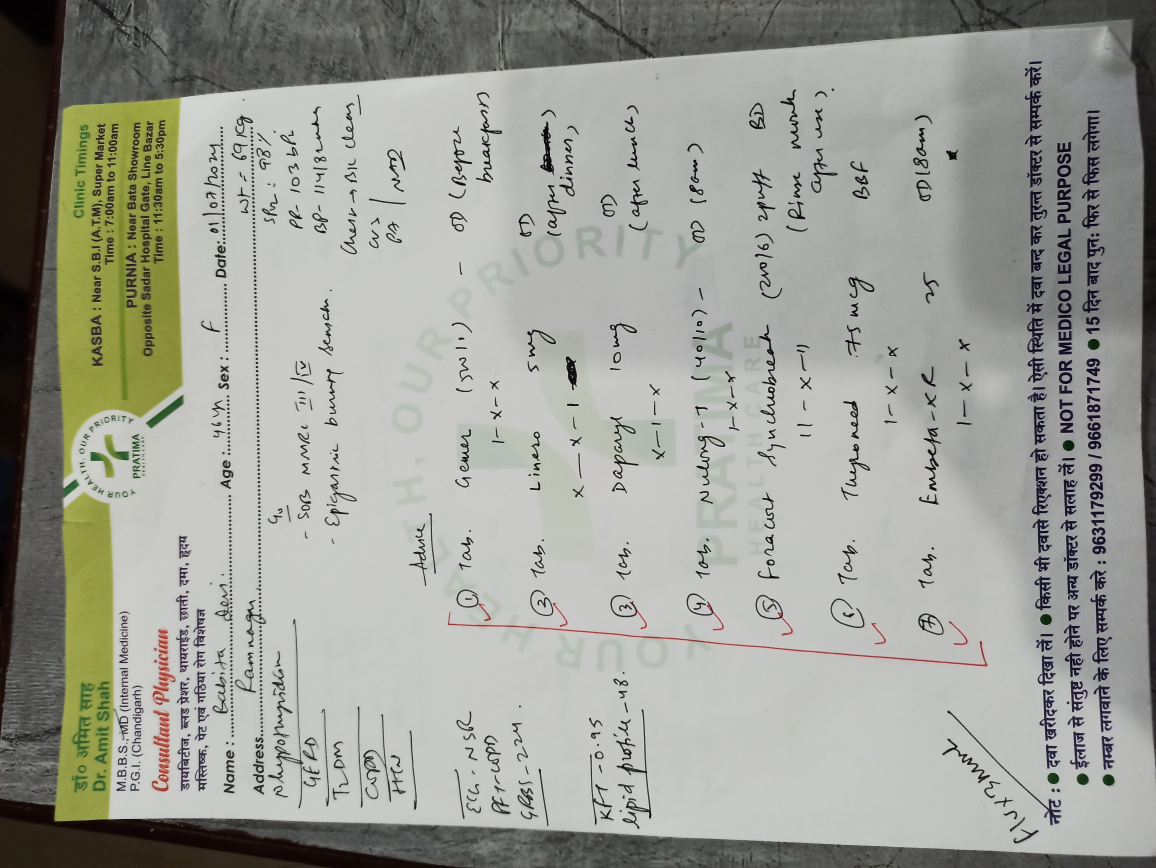 डॉ० अमित साह
Dr. Amit Shah
M.B.B.S., MD (Internal Medicine)
P.G.I. (Chandigarh)
Consultant Physician
डायबिटीज, ब्लड प्रेशर, थायराईड, छाती, दमा, हृदय
मस्तिष्क, पेट एवं गठिया रोग विशेषज्ञ
YOUR HEALTH, OUR PRIORITY
PRATIMA
HEALTHCARE
Clinic Timings
KASBA : Near S.B.I (A.T.M), Super Market
Time : 7:00am to 11:00am
PURNIA : Near Bata Showroom
Opposite Sadar Hospital Gate, Line Bazar
Time : 11:30am to 5:30pm
Name : Babita Devi. Age : 46yr Sex : F Date: 01/07/2024
Address Ramnagar
Wt = 69 Kg
SPO2 : 98%
PR- 103 bpm
BP- 114/8 mmHg
Chest → B/L clear
CVS
PA / NAD
Hypothyroidism
GERD
T2DM
COPD
HTN
C/o
- SOB MMRC III/IV
- Epigastric burning sensatn.
ECG - NSR
PFT - COPD
GRBS - 224.
KFT - 0.95
lipid profile - 48.
Advice
① Tab. Gemer (5v11) - OD (Before breakfast)
1-x-x
② Tab. Linaro 5mg OD (after dinner)
x-x-1
③ Tab. Daparyl 10mg OD (after lunch)
x-1-x
④ Tab. Nuling-T (40/10) - OD (8am)
1-x-x
⑤ Foracort Synchrobreath (200/6) 2puff BD
11-x-11 (Rinse mouth after use).
⑥ Tab. Thyroned 75mcg BBF
1-x-x
⑦ Tab. Embeta-XR 25 OD (8am)
1-x-x
F/S x 3 month
YOUR HEALTH, OUR PRIORITY
PRATIMA
HEALTHCARE
नोट : ● दवा खरीदकर दिखा लें। ● किसी भी दवासे रिएक्शन हो सकता है। ऐसी स्थिति में दवा बन्द कर तुरन्त डॉक्टर से सम्पर्क करें।
● ईलाज से संतुष्ट नहीं होने पर अन्य डॉक्टर से सलाह लें। ● NOT FOR MEDICO LEGAL PURPOSE
● नम्बर लगवाने के लिए सम्पर्क करे : 9631179299 / 9661871749 ● 15 दिन बाद पुन: फिर से फिस लगेगा।